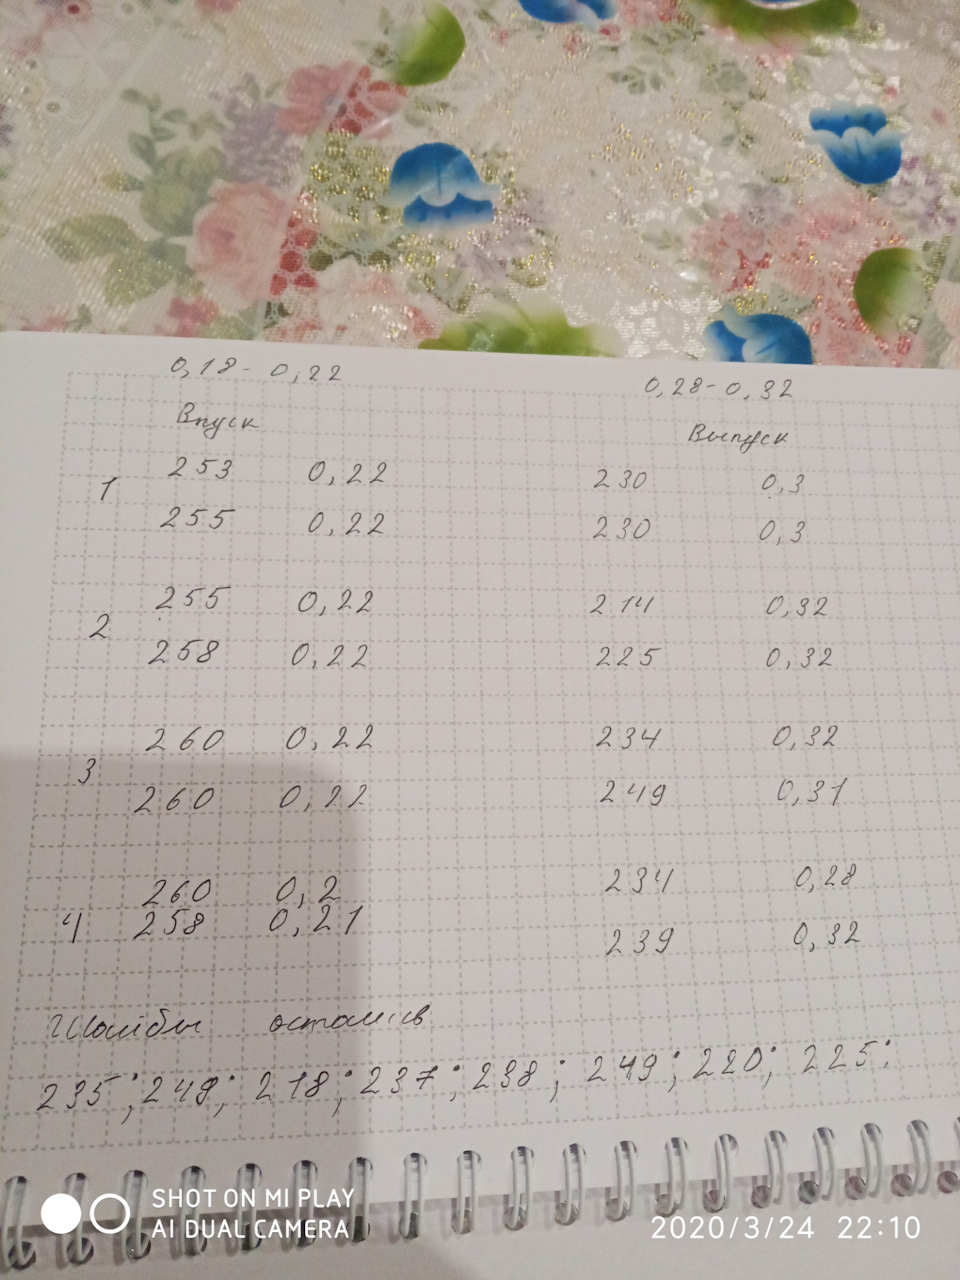 0,18 - 0,22 0,28 - 0,32
Впуск Выпуск
1 253 0,22 230 0,3
255 0,22 230 0,3
2 255 0,22 214 0,32
258 0,22 225 0,32
3 260 0,22 234 0,32
260 0,22 249 0,31
260 0,2 234 0,28
4 258 0,21 239 0,32
Шайбы остались
235; 248; 218; 237; 238; 249; 220; 225;
SHOT ON MI PLAY
AI DUAL CAMERA 2020/3/24 22:10